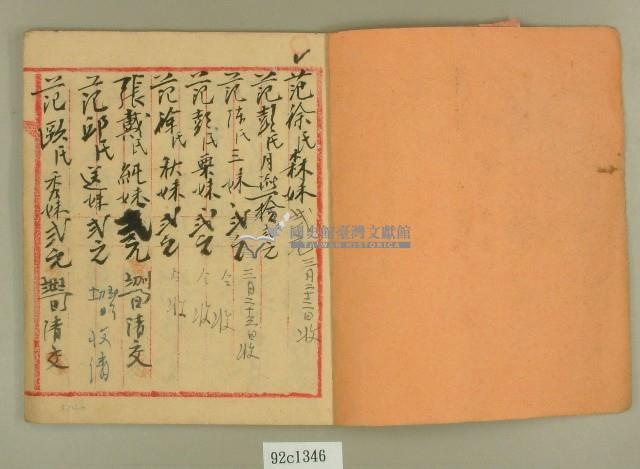 范徐氏森妹弍元 三月二十三日收
范彭氏月 拾弍元
范陈氏三妹 弍元 三月二十三日收
范彭氏粟妹弍元 仝收
范徐氏秋妹弍元 仝收
張戴氏純妹弍元 初四日清交
范邱氏送妹弍元 收清
范歐氏秀妹弍元 日清交
國史館臺灣文獻館
TAIWAN HISTORICA
92c1346